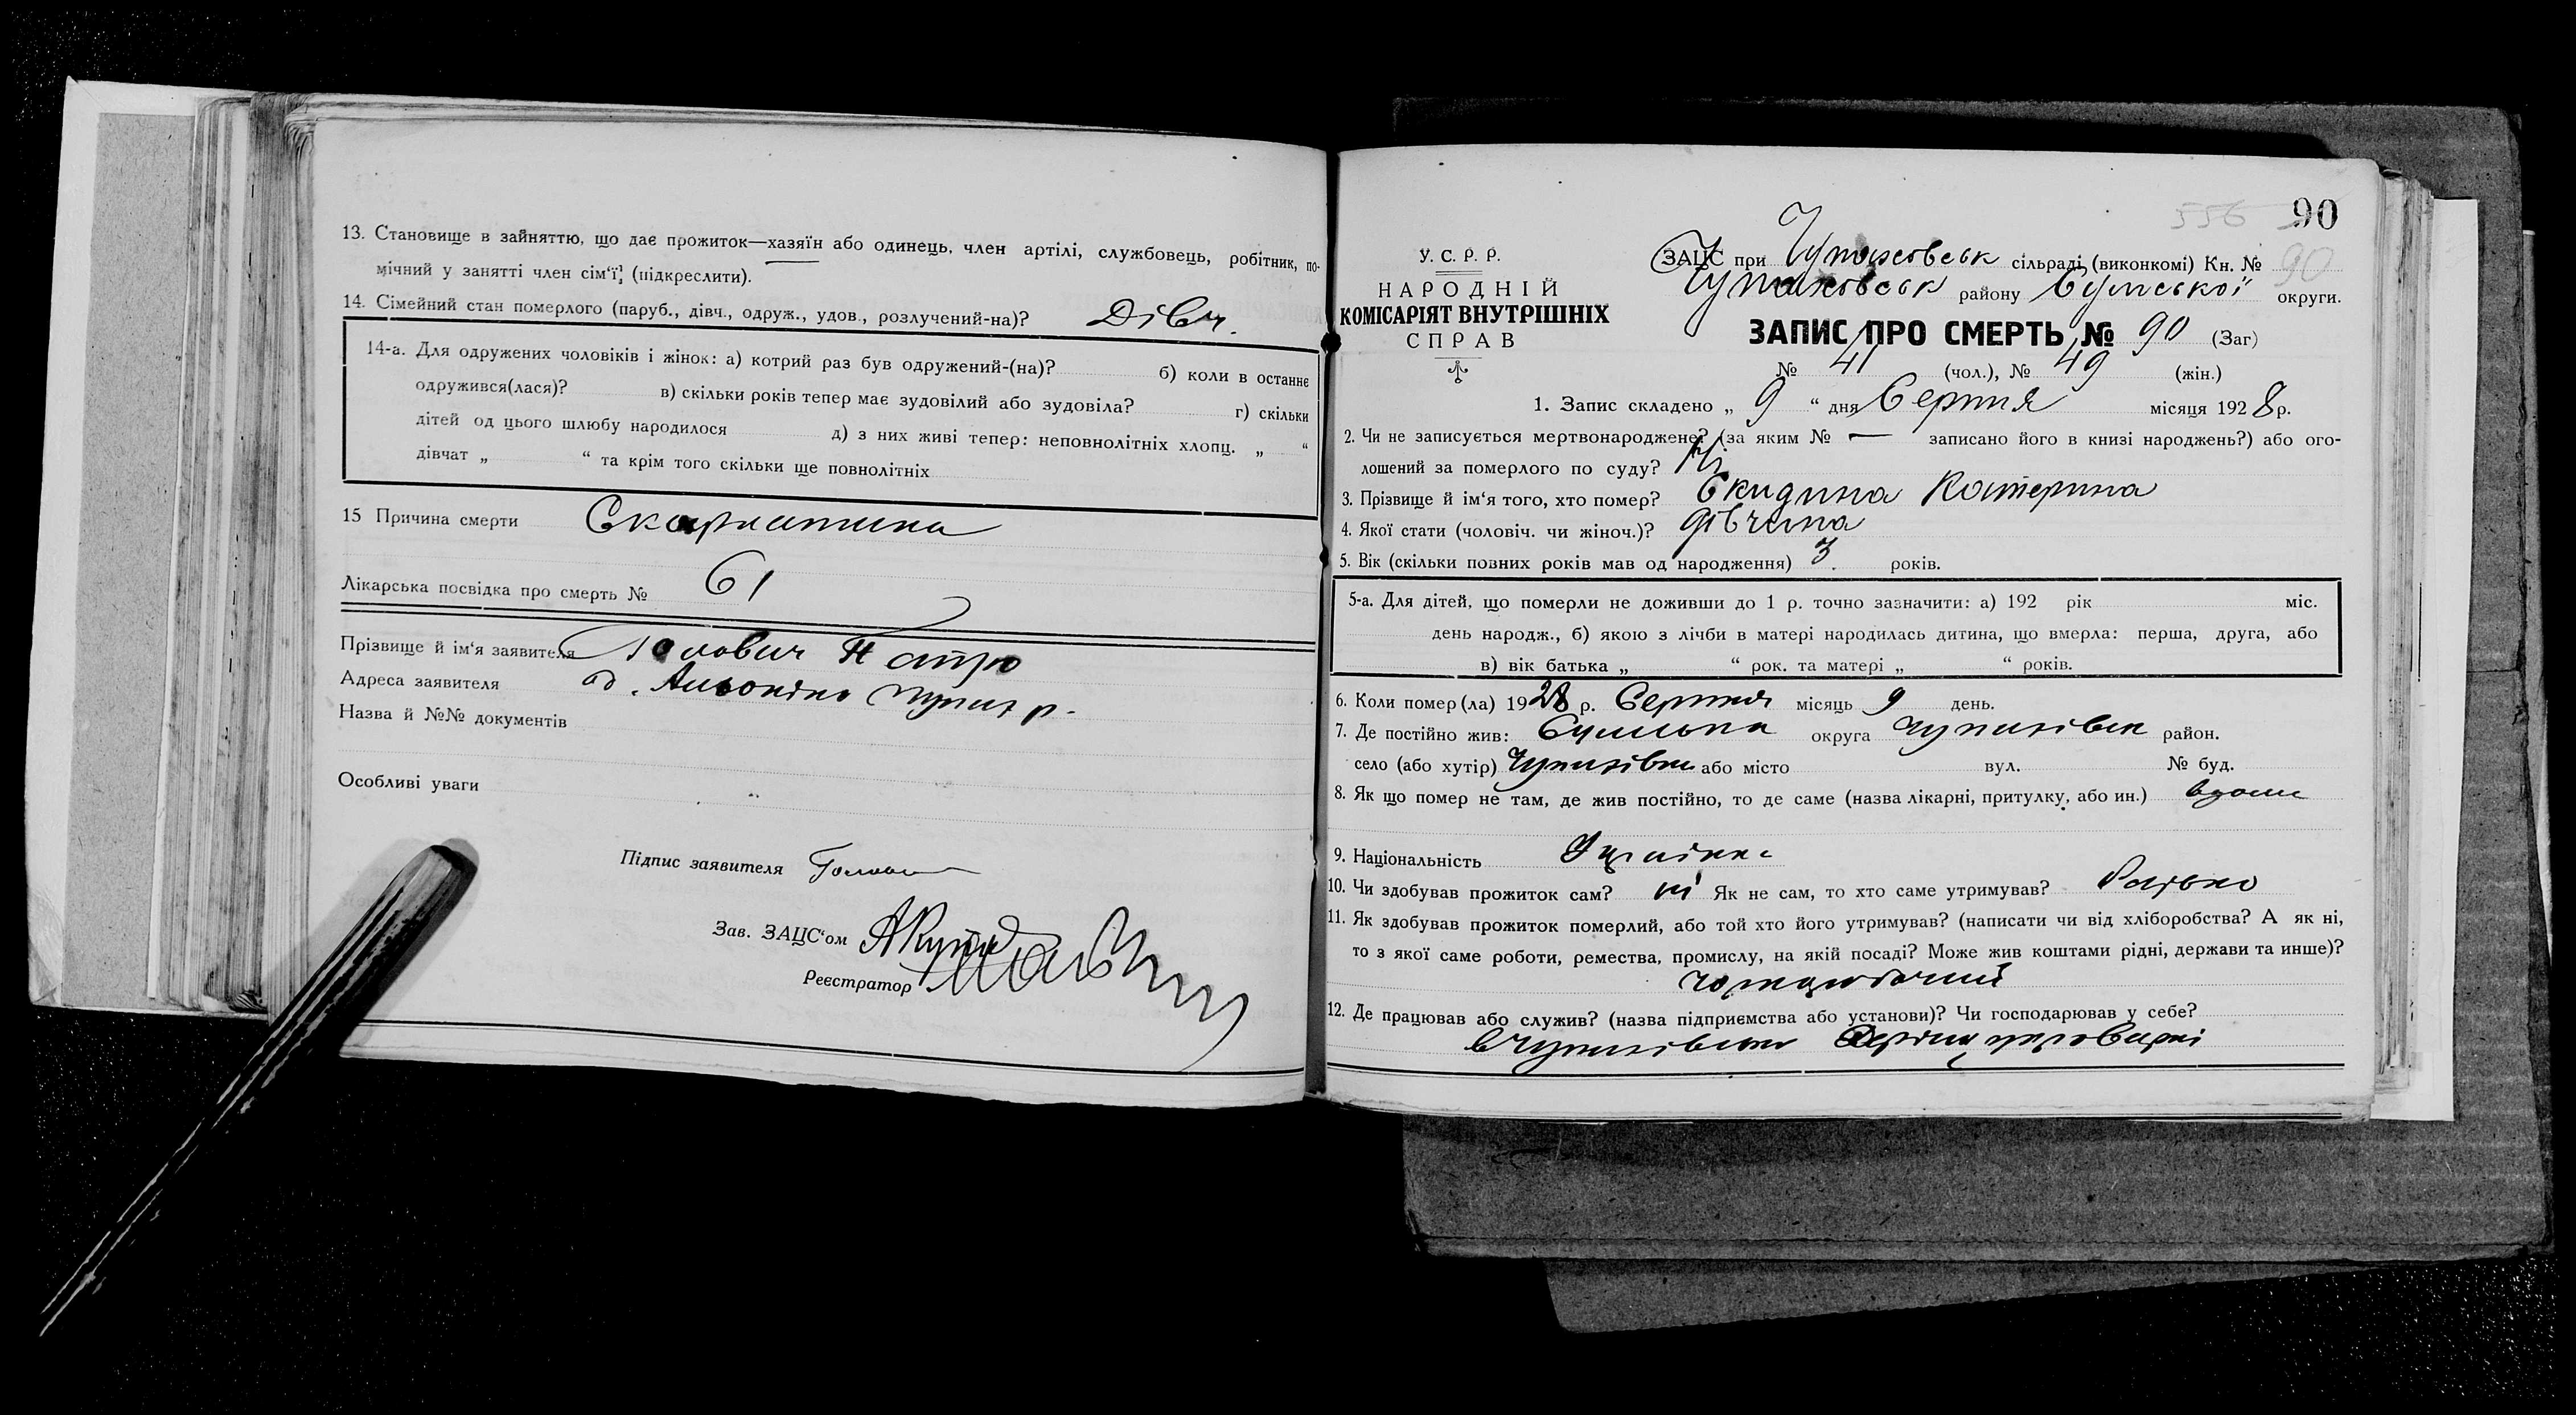 13. Становище в зайняттю, що дає прожиток—хазяїн або одинець, член артілі, службовець, робітник, по-
мічний у занятті член сім'ї, (підкреслити).
14. Сімейний стан померлого (паруб., дівч., одруж., удов., розлучений-на)? Дівч.
14-а. Для одружених чоловіків і жінок: а) котрий раз був одружений-(на)? б) коли в останнє
одружився(лася)? в) скільки років тепер має зудовілий або зудовіла? г) скільки
дітей од цього шлюбу народилося д) з них живі тепер: неповнолітніх хлопц. „ “
дівчат „ “ та крім того скільки ще повнолітніх
15 Причина смерти Скарлатина
Лікарська посвідка про смерть № 61
Прізвище й ім'я заявителя
Адреса заявителя
Назва й №№ документів
Особливі уваги
Підпис заявителя
Зав. ЗАЦС'ом
Реєстратор
556 90
У. С. Р. Р.
НАРОДНІЙ
КОМІСАРІЯТ ВНУТРІШНІХ
СПРАВ
ЗАЦС при сільраді (виконкомі) Кн. № 90
району Сумської округи.
ЗАПИС ПРО СМЕРТЬ № 90 (Заг)
№ 41 (чол.), № 49 (жін.)
1. Запис складено „ 9 “ дня Серпня місяця 1928 р.
2. Чи не записується мертвонароджене? (за яким № — записано його в книзі народжень?) або ого-
лошений за померлого по суду? Ні
3. Прізвище й ім'я того, хто помер? Скидина Катерина
4. Якої стати (чоловіч. чи жіноч.)? дівчина
5. Вік (скільки повних років мав од народження) 3. років.
5-а. Для дітей, що померли не доживши до 1 р. точно зазначити: а) 192 рік міс.
день народж., б) якою з лічби в матері народилась дитина, що вмерла: перша, друга, або
в) вік батька „ “ рок. та матері „ “ років.
6. Коли помер(ла) 1928 р. Серпня місяць 9 день.
7. Де постійно жив: Сумська округа район.
село (або хутір) або місто вул. № буд.
8. Як що помер не там, де жив постійно, то де саме (назва лікарні, притулку, або ин.) вдома
9. Національність Українка
10. Чи здобував прожиток сам? ні Як не сам, то хто саме утримував? батько
11. Як здобував прожиток померлий, або той хто його утримував? (написати чи від хліборобства? А як ні,
то з якої саме роботи, ремества, промислу, на якій посаді? Може жив коштами рідні, держави та инше)?
12. Де працював або служив? (назва підприємства або установи)? Чи господарював у себе?